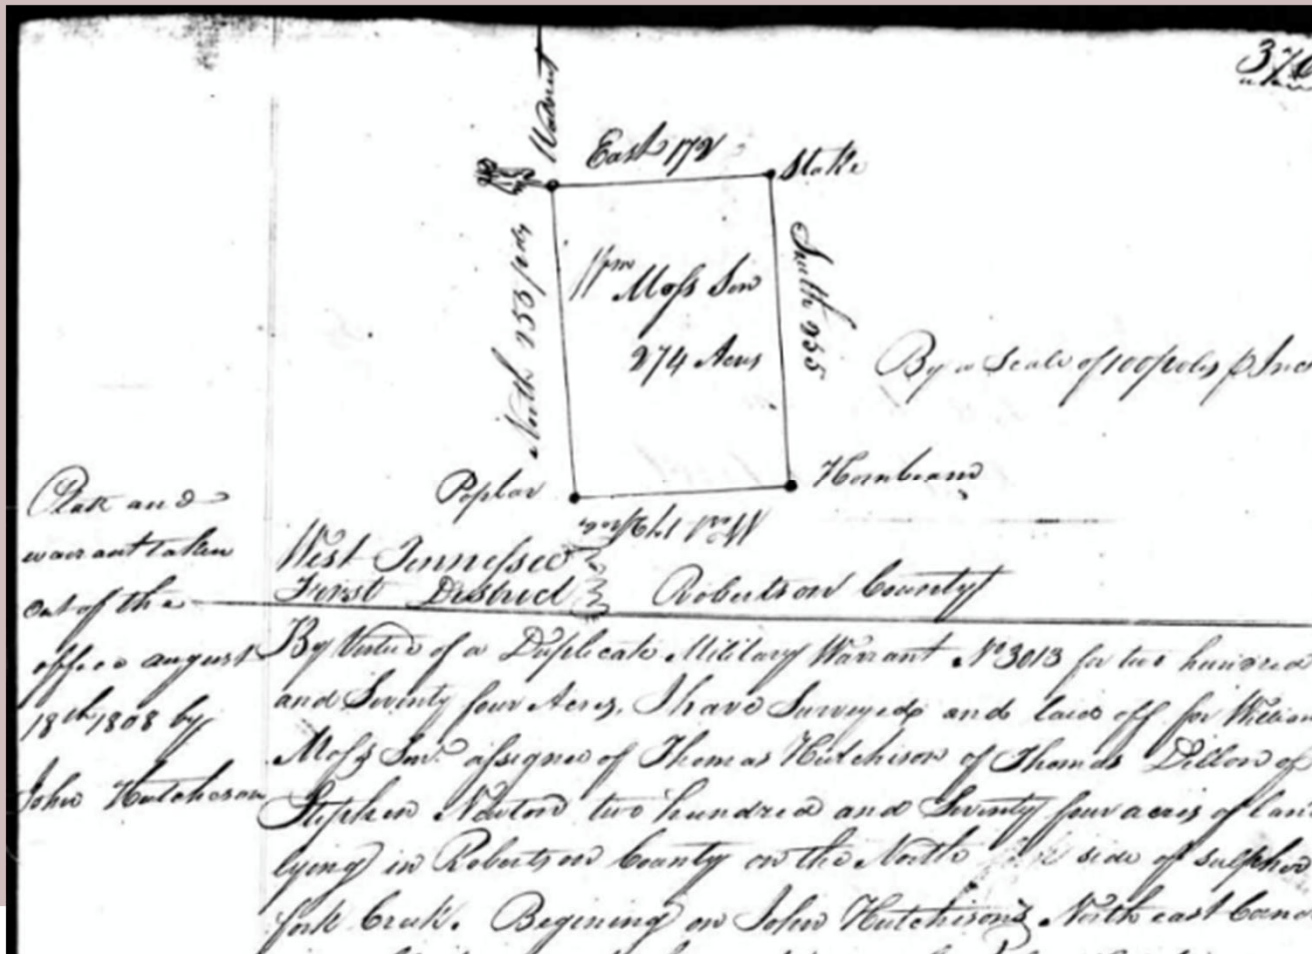 376
Walnut
East 172
Stake
North 255 poles
Wm
Moss Sen
274 Acres
South 255
By a Scale of 100 poles p Inc
Poplar
Hornbeam
West 172 poles
West Tennessee
First District
Robertson County
Platt and
warrant taken
out of the
office august
18th 1808 by
John Hutcheson
By Virtue of a Duplicate Military Warrant No 3013 for two hundred
and Seventy four Acres, I have Surveyed and laid off for William
Moss Senr. assignee of Thomas Hutchison of Thomas Dillon of
Stephen Newton two hundred and Seventy four acres of lan
lying in Robertson County on the North side of sulpher
fork Creek. Begining on John Hutchison's North east Corne